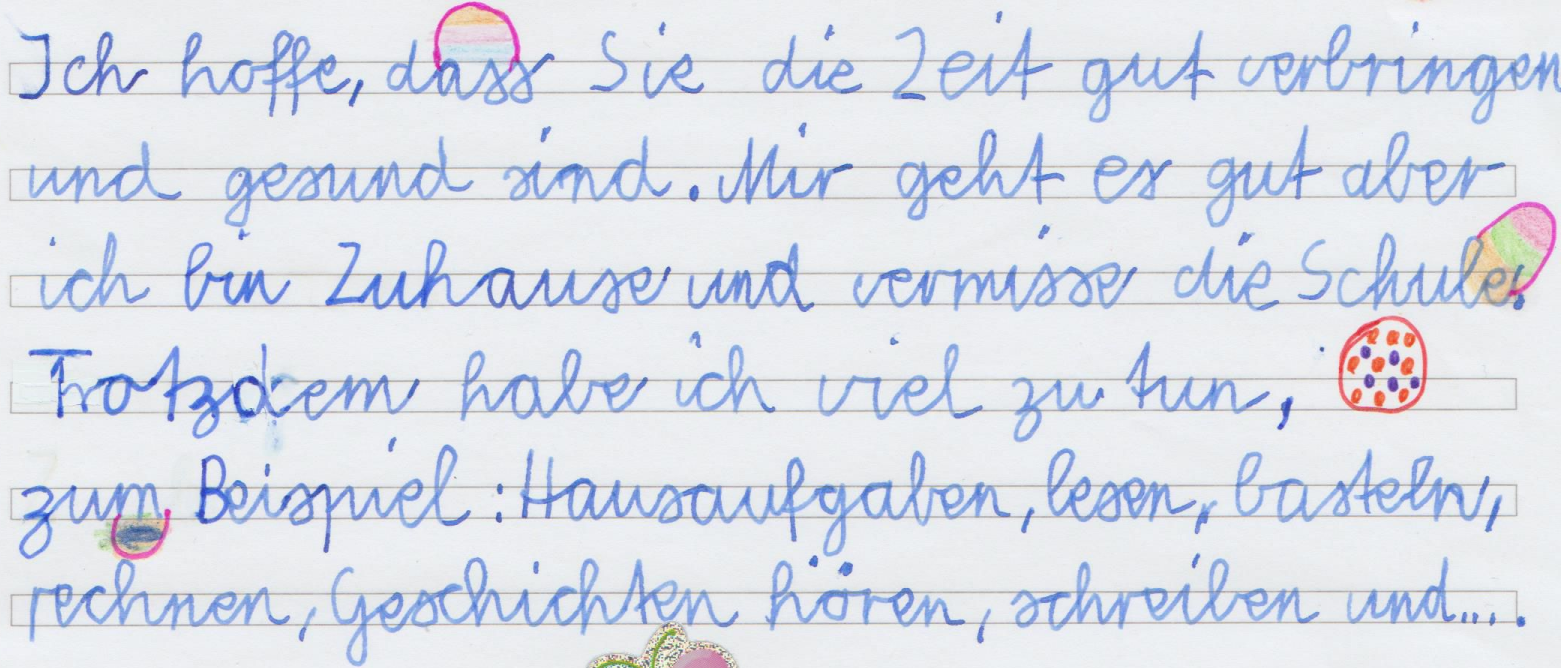 Ich hoffe, dass Sie die Zeit gut verbringen
und gesund sind. Mir geht es gut aber
ich bin Zuhause und vermisse die Schule.
Trotzdem habe ich viel zu tun,
zum Beispiel: Hausaufgaben, lesen, basteln,
rechnen, Geschichten hören, schreiben und....